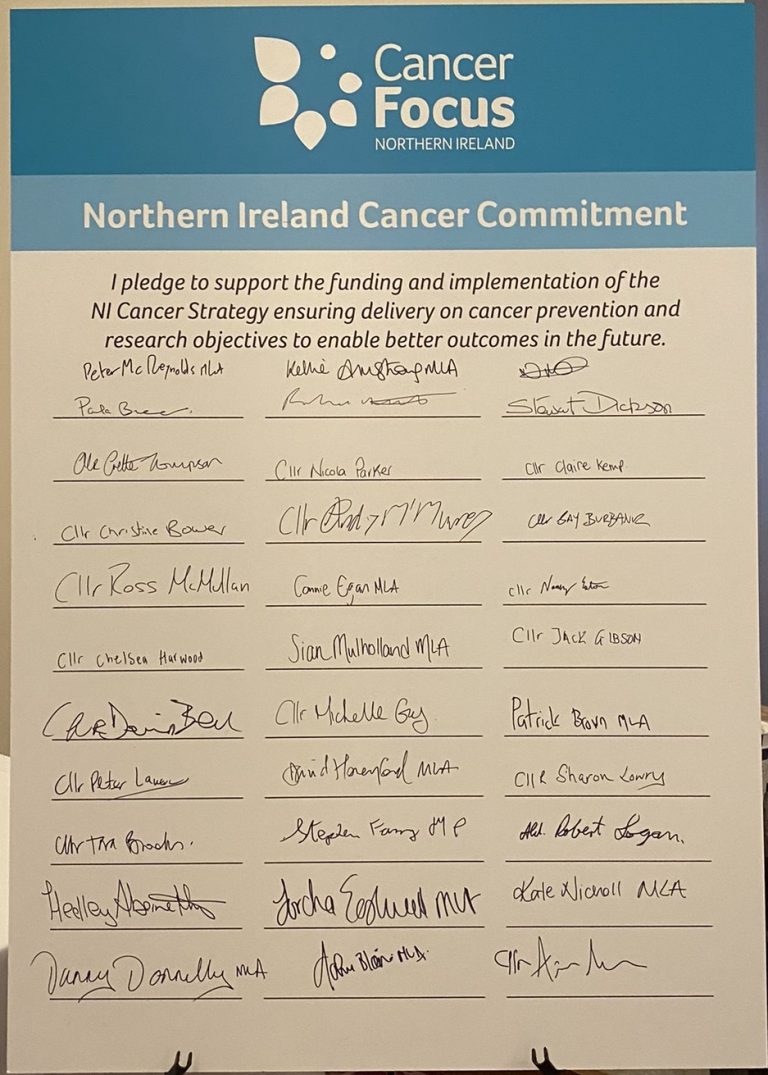 Cancer
Focus
NORTHERN IRELAND
Northern Ireland Cancer Commitment
I pledge to support the funding and implementation of the
NI Cancer Strategy ensuring delivery on cancer prevention and
research objectives to enable better outcomes in the future.
Peter McReynolds MLA Kellie Armstrong MLA
Paula Stewart Dickson
Thompson Cllr Nicola Parker Cllr Claire Kemp
Cllr Christine Bower Cllr Andy McMurray Cllr GAY BURBANK
Cllr Ross McMullan Connie Egan MLA Cllr Nancy Eaton
Cllr Chelsea Harwood Sian Mulholland MLA Cllr JACK GIBSON
Bell Cllr Michelle Guy Patrick Brown MLA
Cllr Peter David Honeyford MLA Cllr Sharon Lowry
Cllr Tara Brooks. Stephen Farry MP Ald. Robert Logan.
Hedley Abernethy Sorcha Eastwood MLA Kate Nicholl MLA
Danny Donnelly MLA John Blair MLA. Cllr